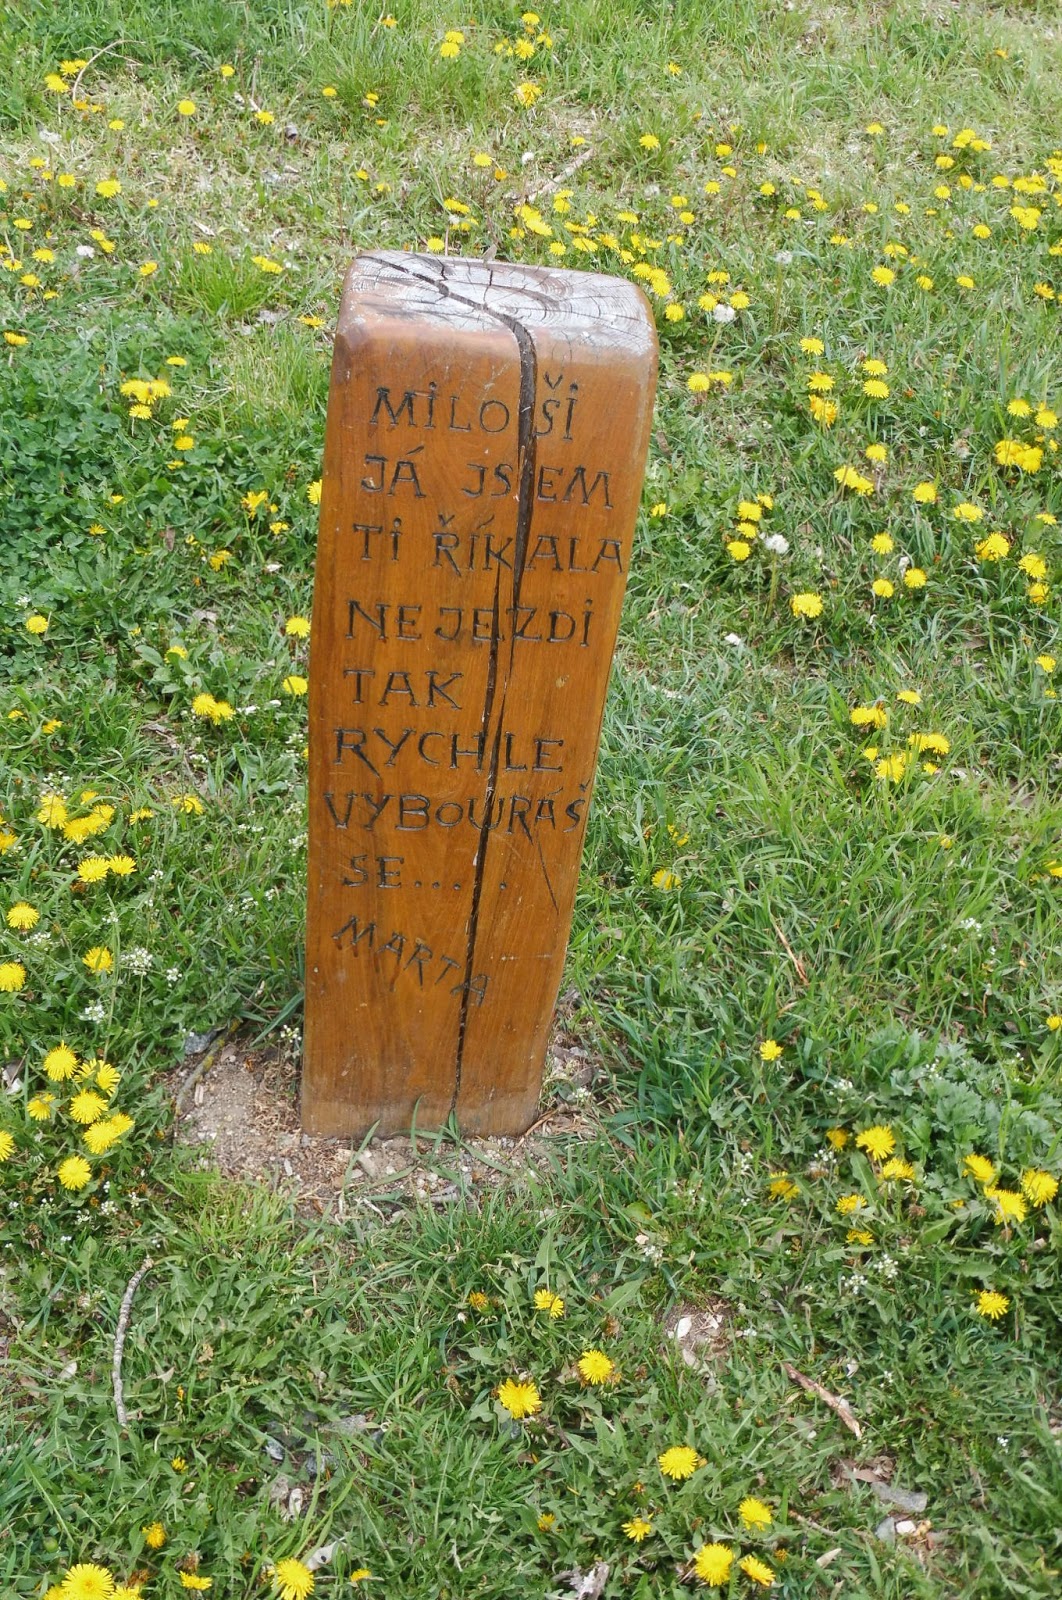 MILOŠI
JÁ JSEM
TI ŘÍKALA
NEJEZDI
TAK
RYCHLE
VYBOURÁŠ
SE.....
MARTA